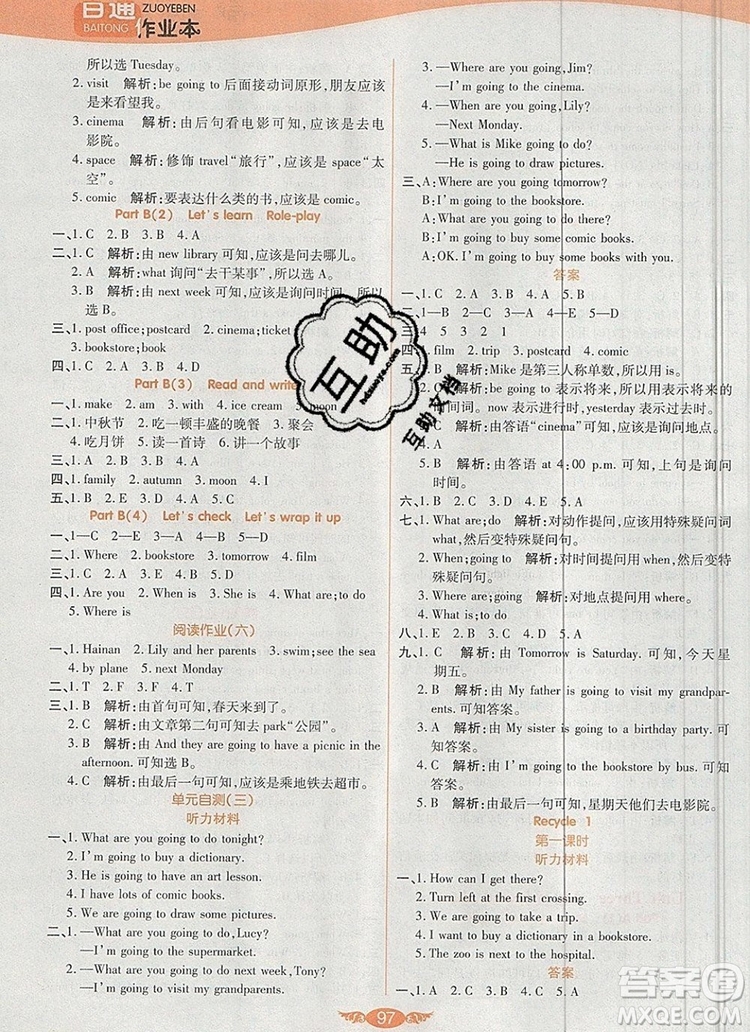 百通
BAITONG
ZUOYEBEN
作业本
所以选 Tuesday。
2. visit 解析:be going to 后面接动词原形,朋友应该
是来看望我。
3. cinema 解析:由后句看电影可知,应该是去电
影院。
4. space 解析:修饰 travel“旅行”,应该是 space“太
空”。
5. comic 解析:要表达什么类的书,应该是 comic。
Part B(2) Let's learn Role-play
一、1. C 2. B 3. B 4. A
二、1. C 解析:由 new library 可知,应该是问去哪儿。
2. A 解析:what 询问“去干某事”,所以选 A。
3. B 解析:由 next week 可知,应该是询问时间,所以
选 B。
三、1. post office;postcard 2. cinema;ticket
3. bookstore;book
四、1. D 2. C 3. B 4. A
Part B(3) Read and write
一、1. make 2. am 3. with 4. ice cream 5. moon
二、1. 中秋节 2. 吃一顿丰盛的晚餐 3. 聚会
4. 吃月饼 5. 读一首诗 6. 讲一个故事
三、1. family 2. autumn 3. moon 4. I
四、1. B 2. E 3. D 4. A 5. C
Part B(4) Let's check Let's wrap it up
一、1—C 2—D 3—E 4—B 5—A
二、1. Where 2. bookstore 3. tomorrow 4. film
三、1. B 2. A 3. C 4. D
四、1. Are you 2. When is 3. She is 4. What are;to do
5. Where is
阅读作业(六)
一、1. Hainan 2. Lily and her parents 3. swim;see the
film 4. By plane 5. next Monday
二、1. T 2. T 3. F 4. F
三、1. B 解析:由首句可知,春天来到了。
2. A 解析:由文章第二句可知去 park“公园”。
3. B 解析:由 And they are going to have a picnic in the
afternoon. 可知选 B。
4. C 解析:由最后一句可知,应该是乘地铁去超市。
单元自测(三)
听力材料
一、1. What are you going to do tonight?
2. I'm going to buy a dictionary.
3. I'm going to have an art lesson.
4. I have lots of comic books.
5. We are going to draw some pictures.
二、1. —What are you going to do,Lucy?
—I'm going to the supermarket.
2. —What are you going to do next week,Tony?
—I'm going to visit my grandparents.
3. —Where are you going,Jim?
—I'm going to the cinema.
4. —When are you going,Lily?
—Next Monday.
5. —What is Mike going to do?
—He is going to draw pictures.
三、A:Where are you going tomorrow?
B:I'm going to the bookstore.
A:What are you going to do there?
B:I'm going to buy some comic books.
A:OK. I'm going to buy some books with you.
答案
一、1. C 2. A 3. A 4. A 5. B
二、1—C 2—A 3—E 4—B 5—D
三、4 5 3 2 1
四、1. film 2. trip 3. postcard 4. comic
五、1. B 解析:Mike 是第三人称单数,所以用 is。
2. C 解析:be going to 表示将来,所以用表示将来的
时间词。now 表示进行,yesterday 表示过去。
3. C 解析:由答语“cinema”可知,应该是询问地点。
4. A
5. B 解析:由答语 at 4:00 p.m. 可知,上句是询问
时间。
六、1. B 2. C 3. D 4. E 5. A
七、1. What are;do 解析:对动作提问,应该用特殊疑问词
what,然后变特殊疑问句。
2. When;going to 解析:对时间提问用 when,然后变特
殊疑问句。
3. Where;going 解析:对地点提问用 where。
4. What is;to do
八、1. E 2. D 3. B 4. C 5. A
九、1. C 解析:由 Tomorrow is Saturday. 可知,今天星
期五。
2. B 解析:由 My father is going to visit my grandpar-
ents. 可知答案。
3. A 解析:由 My sister is going to a birthday party. 可
知答案。
4. C 解析:由 I'm going to the bookstore by bus. 可知
答案。
5. B 解析:由最后一句可知,星期天他们去电影院。
Recycle 1
第一课时
听力材料
一、1. How can I get there?
2. Turn left at the first crossing.
3. We are going to take a trip.
4. I want to buy a dictionary in a bookstore.
5. The zoo is next to the hospital.
答案
一、1. A 2. C 3. A 4. C 5. A
97
互助
互助文档
答案圈
MXQE.COM